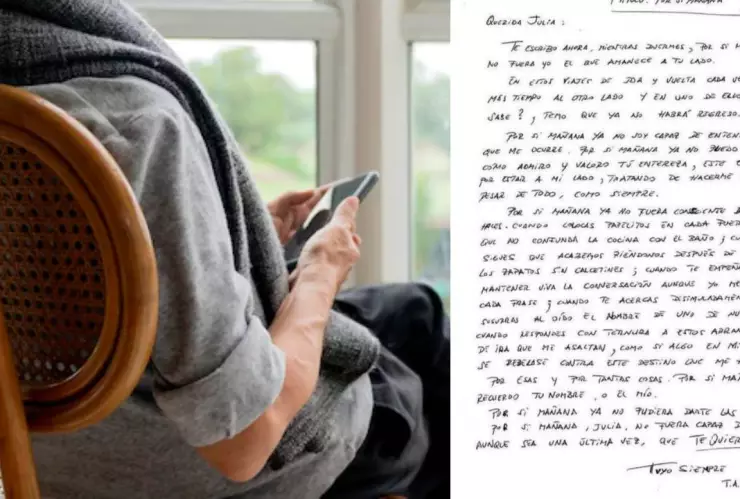 TÍTULO: POR SI MAÑANA
QUERIDA JULIA:
TE ESCRIBO AHORA, MIENTRAS DUERMES, POR SI M
NO FUERA YO EL QUE AMANECE A TU LADO.
EN ESTOS VIAJES DE IDA Y VUELTA CADA V
MÁS TIEMPO AL OTRO LADO Y EN UNO DE ELLO
SABE?, TEMO QUE YA NO HABRÁ REGRESO.
POR SI MAÑANA YA NO SOY CAPAZ DE ENTEN
QUE ME OCURRE. POR SI MAÑANA YA NO PUEDO
CÓMO ADMIRO Y VALORO TU ENTEREZA, ESTE E
POR ESTAR A MI LADO, TRATANDO DE HACERME
PESAR DE TODO, COMO SIEMPRE.
POR SI MAÑANA YA NO FUERA CONSCIENTE D
HACES. CUANDO COLOCAS PAPELITOS EN CADA PUER
QUE NO CONFUNDA LA COCINA CON EL BAÑO; CU
SIGUES QUE ACABEMOS RIÉNDONOS DESPUÉS DE
LOS ZAPATOS SIN CALCETINES; CUANDO TE EMPEÑ
MANTENER VIVA LA CONVERSACIÓN AUNQUE YO ME
CADA FRASE; CUANDO TE ACERCAS DISIMULADAMEN
SUSURRAS AL OÍDO EL NOMBRE DE UNO DE NU
CUANDO RESPONDES CON TERNURA A ESTOS ARRAN
DE IRA QUE ME ASALTAN, COMO SI ALGO EN MI
SE REBELASE CONTRA ESTE DESTINO QUE ME
POR ESAS Y POR TANTAS COSAS. POR SI MAÑ
RECUERDO TU NOMBRE, O EL MÍO.
POR SI MAÑANA YA NO PUDIERA DARTE LAS
POR SI MAÑANA, JULIA, NO FUERA CAPAZ D
AUNQUE SEA UNA ÚLTIMA VEZ, QUE TE QUIER
TUYO SIEMPRE
T.A.